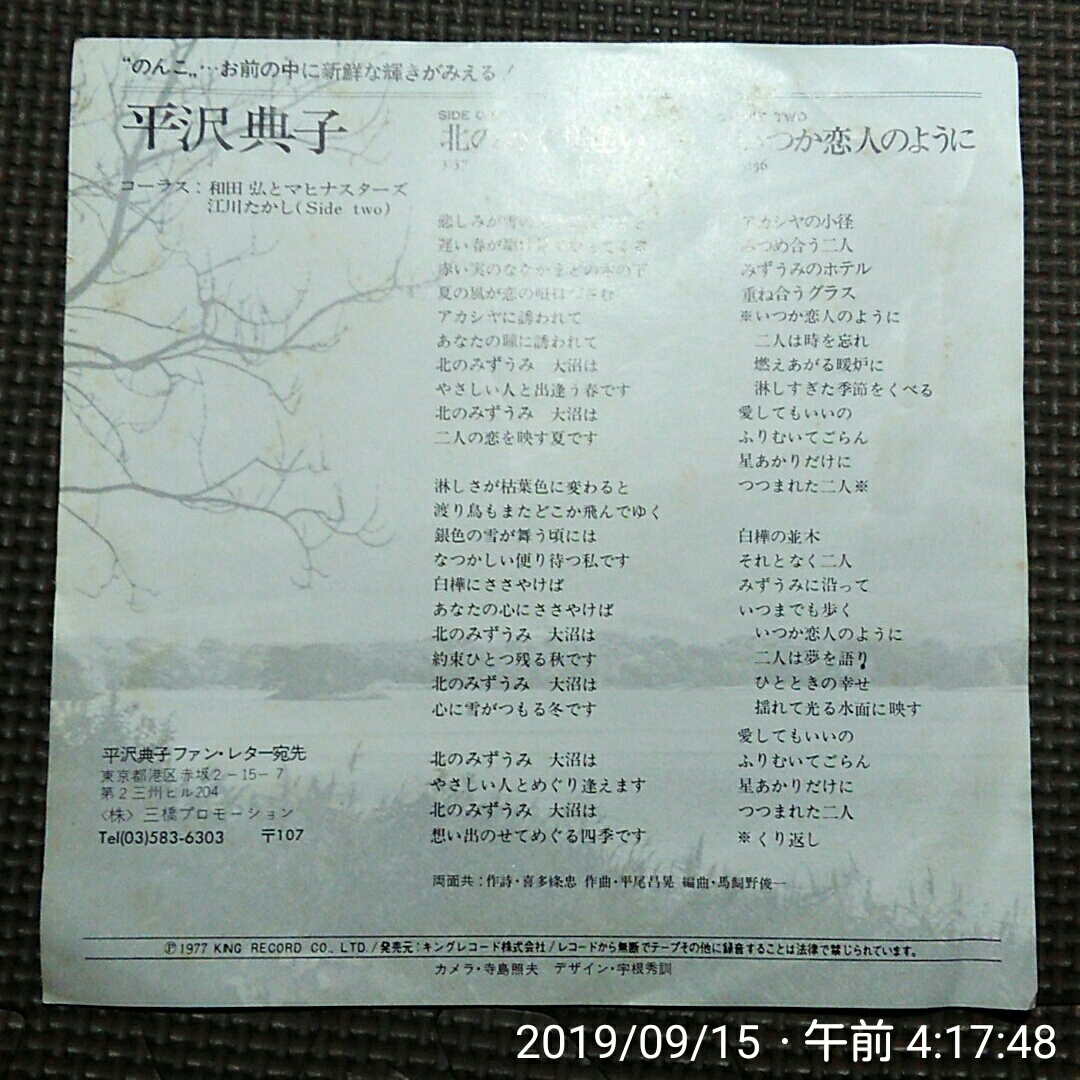 “のんこ„…お前の中に新鮮な輝きがみえる！
平沢典子
コーラス：和田 弘とマヒナスターズ
江川たかし(Side two)
SIDE
北の
3:37
悲しみが雪の
遅い春が駆け足でやってくる
赤い実のななかまどの木の下
夏の風が恋の唄口づさむ
アカシヤに誘われて
あなたの瞳に誘われて
北のみずうみ　大沼は
やさしい人と出逢う春です
北のみずうみ　大沼は
二人の恋を映す夏です
淋しさが枯葉色に変わると
渡り鳥もまたどこか飛んでゆく
銀色の雪が舞う頃には
なつかしい便り待つ私です
白樺にささやけば
あなたの心にささやけば
北のみずうみ　大沼は
約束ひとつ残る秋です
北のみずうみ　大沼は
心に雪がつもる冬です
北のみずうみ　大沼は
やさしい人とめぐり逢えます
北のみずうみ　大沼は
想い出のせてめぐる四季です
TWO
いつか恋人のように
:56
アカシヤの小径
みつめ合う二人
みずうみのホテル
重ね合うグラス
※いつか恋人のように
二人は時を忘れ
燃えあがる暖炉に
淋しすぎた季節をくべる
愛してもいいの
ふりむいてごらん
星あかりだけに
つつまれた二人※
白樺の並木
それとなく二人
みずうみに沿って
いつまでも歩く
いつか恋人のように
二人は夢を語り
ひとときの幸せ
揺れて光る水面に映す
愛してもいいの
ふりむいてごらん
星あかりだけに
つつまれた二人
※くり返し
平沢典子ファン・レター宛先
東京都港区赤坂2-15-7
第2三州ビル204
〈株〉三橋プロモーション
Tel(03)583-6303　〒107
両面共：作詩・喜多條忠 作曲・平尾昌晃 編曲・馬飼野俊一
Ⓟ1977 KING RECORD CO., LTD./発売元：キングレコード株式会社/レコードから無断でテープその他に録音することは法律で禁じられています。
カメラ・寺島照夫　デザイン・宇根秀訓
2019/09/15・午前 4:17:48